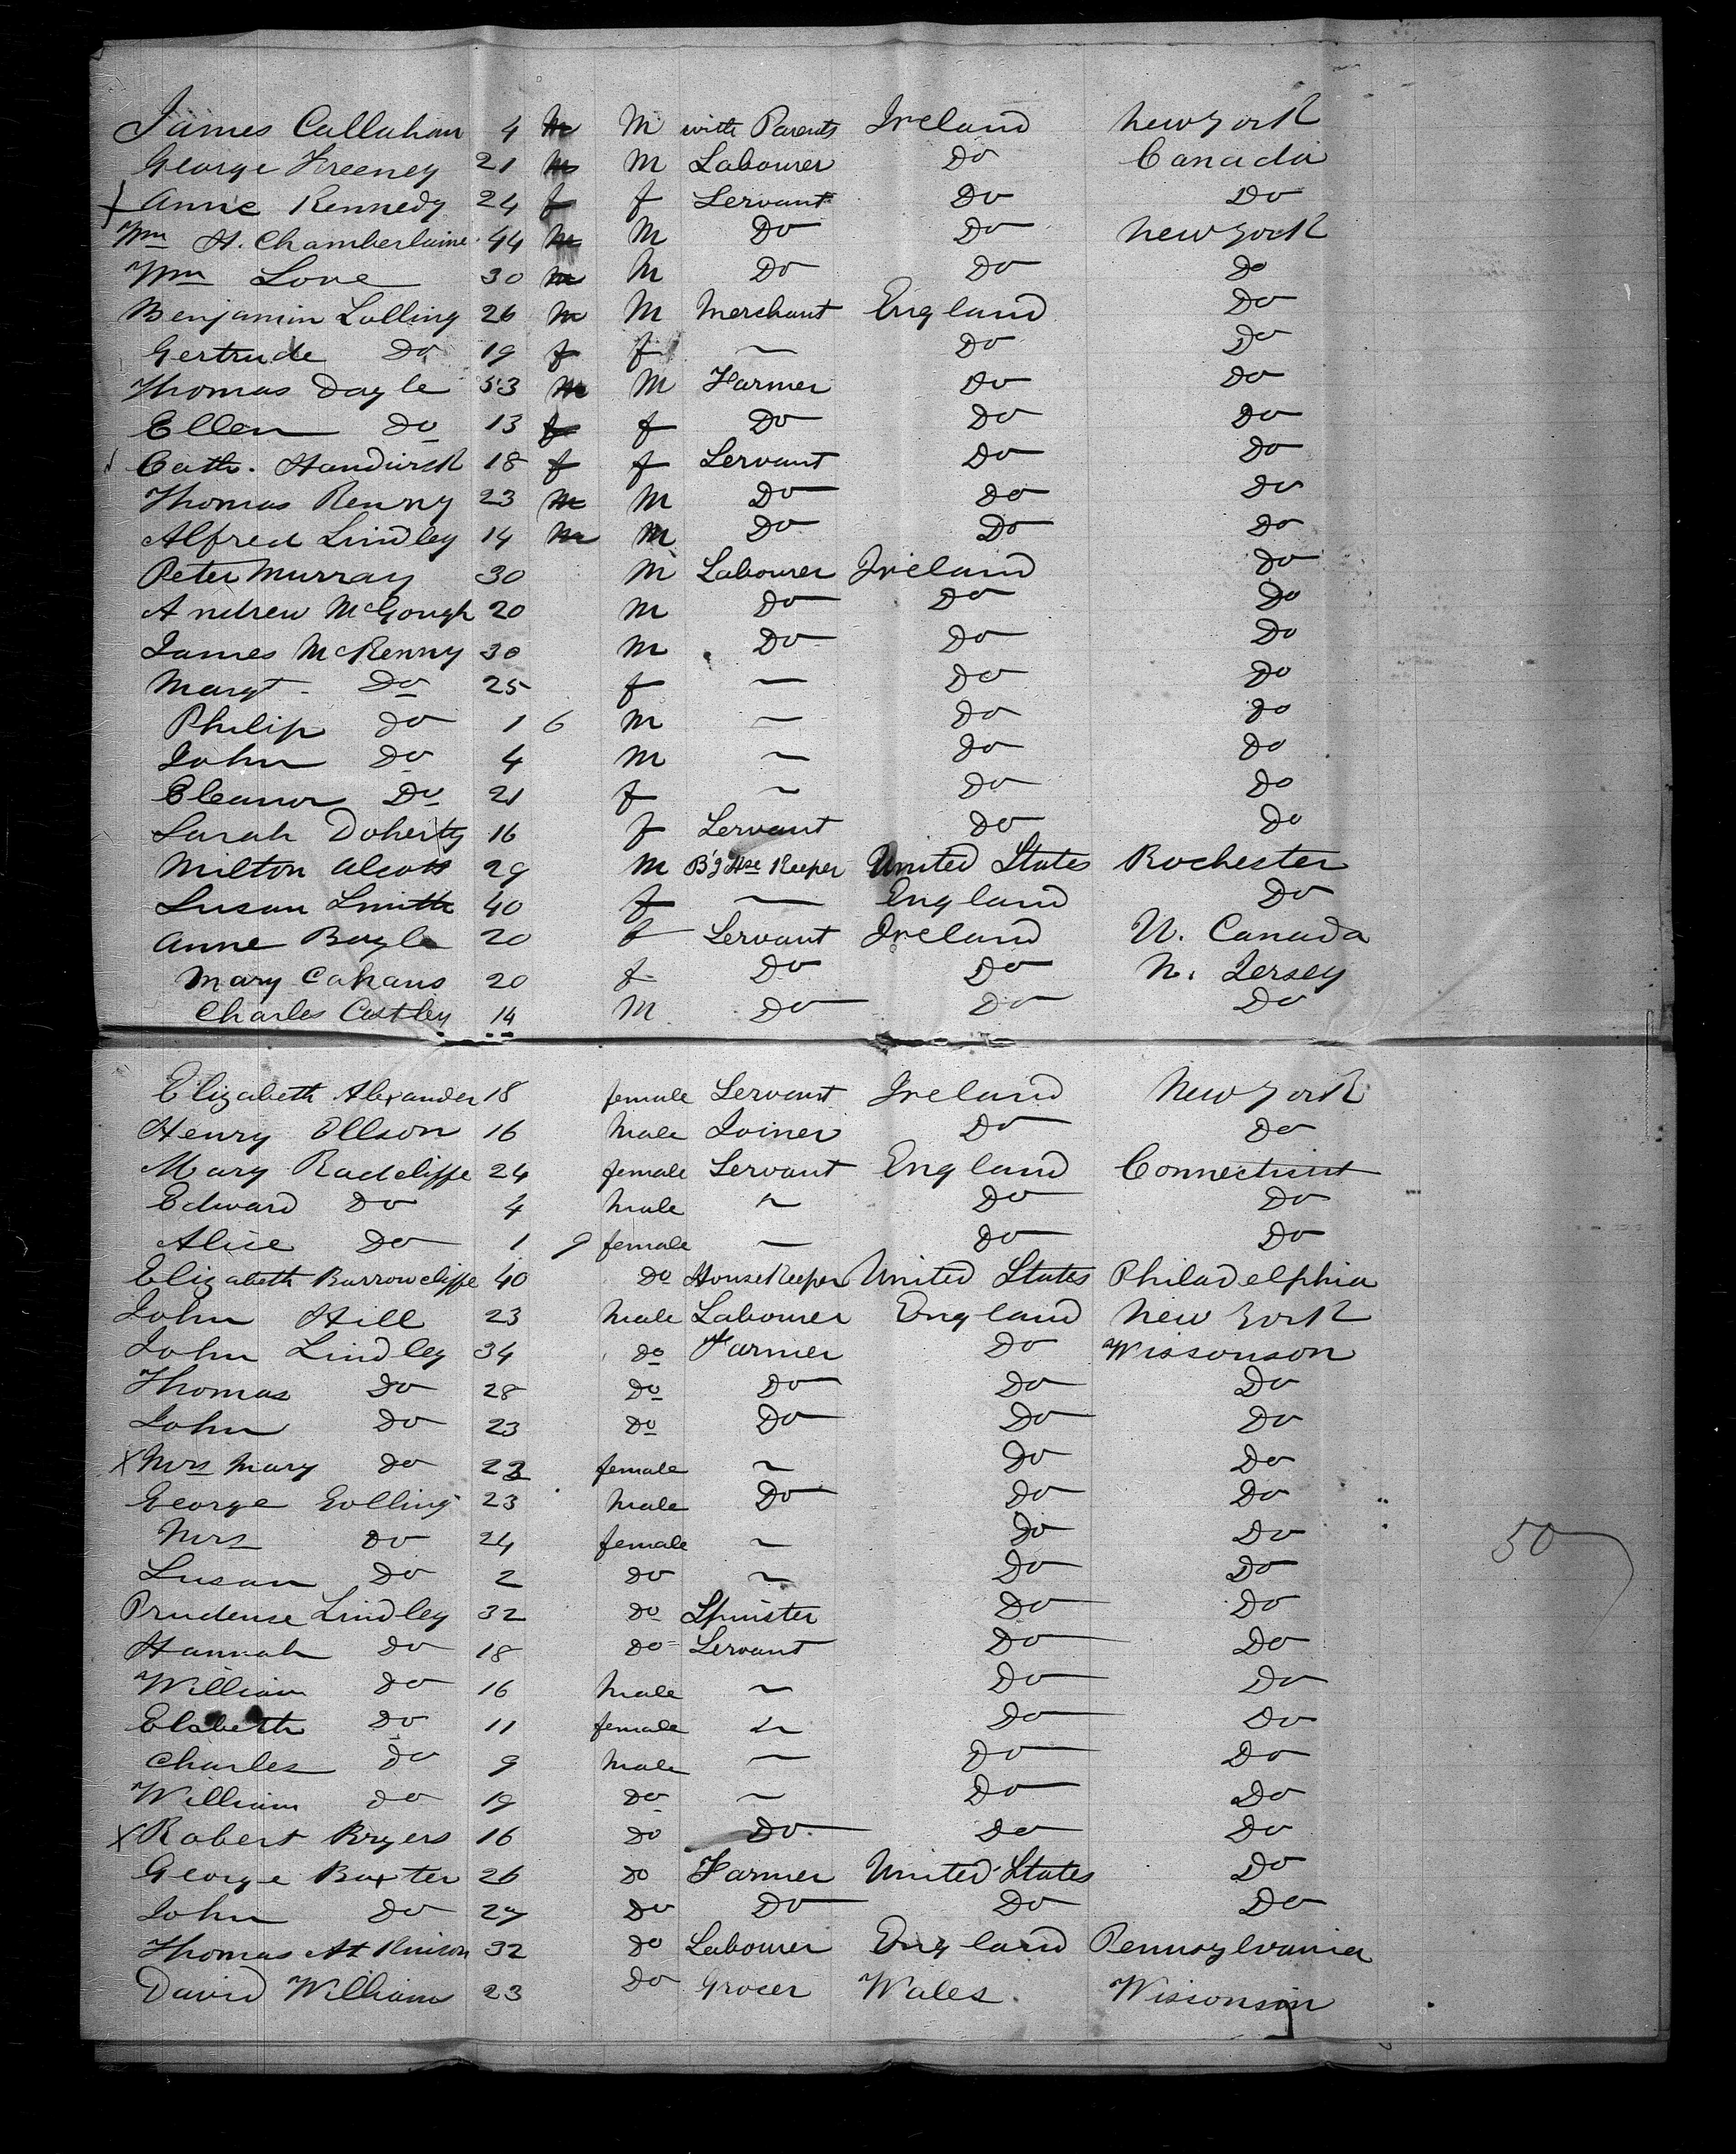 James Callahan 4 m M with Parents Ireland New York
George Freeney 21 m M Labourer Do Canada
X Anne Kennedy 24 f f Servant Do Do
Wm H. Chamberlaine 44 m M Do Do New York
Wm Love 30 m M Do Do Do
Benjamin Lolling 26 m M Merchant England Do
Gertrude Do 19 f f ~ Do Do
Thomas Dayle 53 m M Farmer Do Do
Ellen Do 13 f f Do Do Do
Cath. 18 f f Servant Do Do
Thomas Kenny 23 m M Do Do Do
Alfred Lindley 14 m M Do Do Do
Peter Murray 30 M Labourer Ireland Do
Andrew McGough 20 M Do Do Do
James McKenny 30 M Do Do Do
Margt. Do 25 f ~ Do Do
Philip Do 1 6 M ~ Do Do
John Do 4 M ~ Do Do
Eleanor Do 21 f ~ Do Do
Sarah Doherty 16 f Servant Do Do
Milton Alcott 29 M B'g Hse Keeper United States Rochester
Susan Smith 40 f ~ England Do
Anne Boyle 20 f Servant Ireland U. Canada
Mary Cahans 20 f Do Do N. Jersey
Charles Costley 14 M Do Do Do
Elizabeth Alexander 18 female Servant Ireland New York
Henry Ellson 16 Male Joiner Do Do
Mary Radcliffe 24 female Servant England Connecticut
Edward Do 4 Male ~ Do Do
Alice Do 1 9 female ~ Do Do
Elizabeth Barrowcliffe 40 Do HouseKeeper United States Philadelphia
John Hill 23 Male Labourer England New York
John Lindley 34 Do Farmer Do Wissonson
Thomas Do 28 Do Do Do Do
John Do 23 Do Do Do Do
X Mrs Mary Do 23 female ~ Do Do
George Golling 23 Male Do Do Do
Mrs Do 24 female ~ Do Do
50
Susan Do 2 Do ~ Do Do
Prudense Lindley 32 Do Spinster Do Do
Hannah Do 18 Do Servant Do Do
William Do 16 Male ~ Do Do
Elsbeth Do 11 female ~ Do Do
Charles Do 9 Male ~ Do Do
William Do 19 Do ~ Do Do
X Robert Bryers 16 Do Do Do Do
George Baxter 26 Do Farmer United States Do
John Do 27 Do Do Do Do
Thomas Atkinson 32 Do Labourer England Pennsylvania
David Williams 23 Do Grocer Wales. Wisconsin